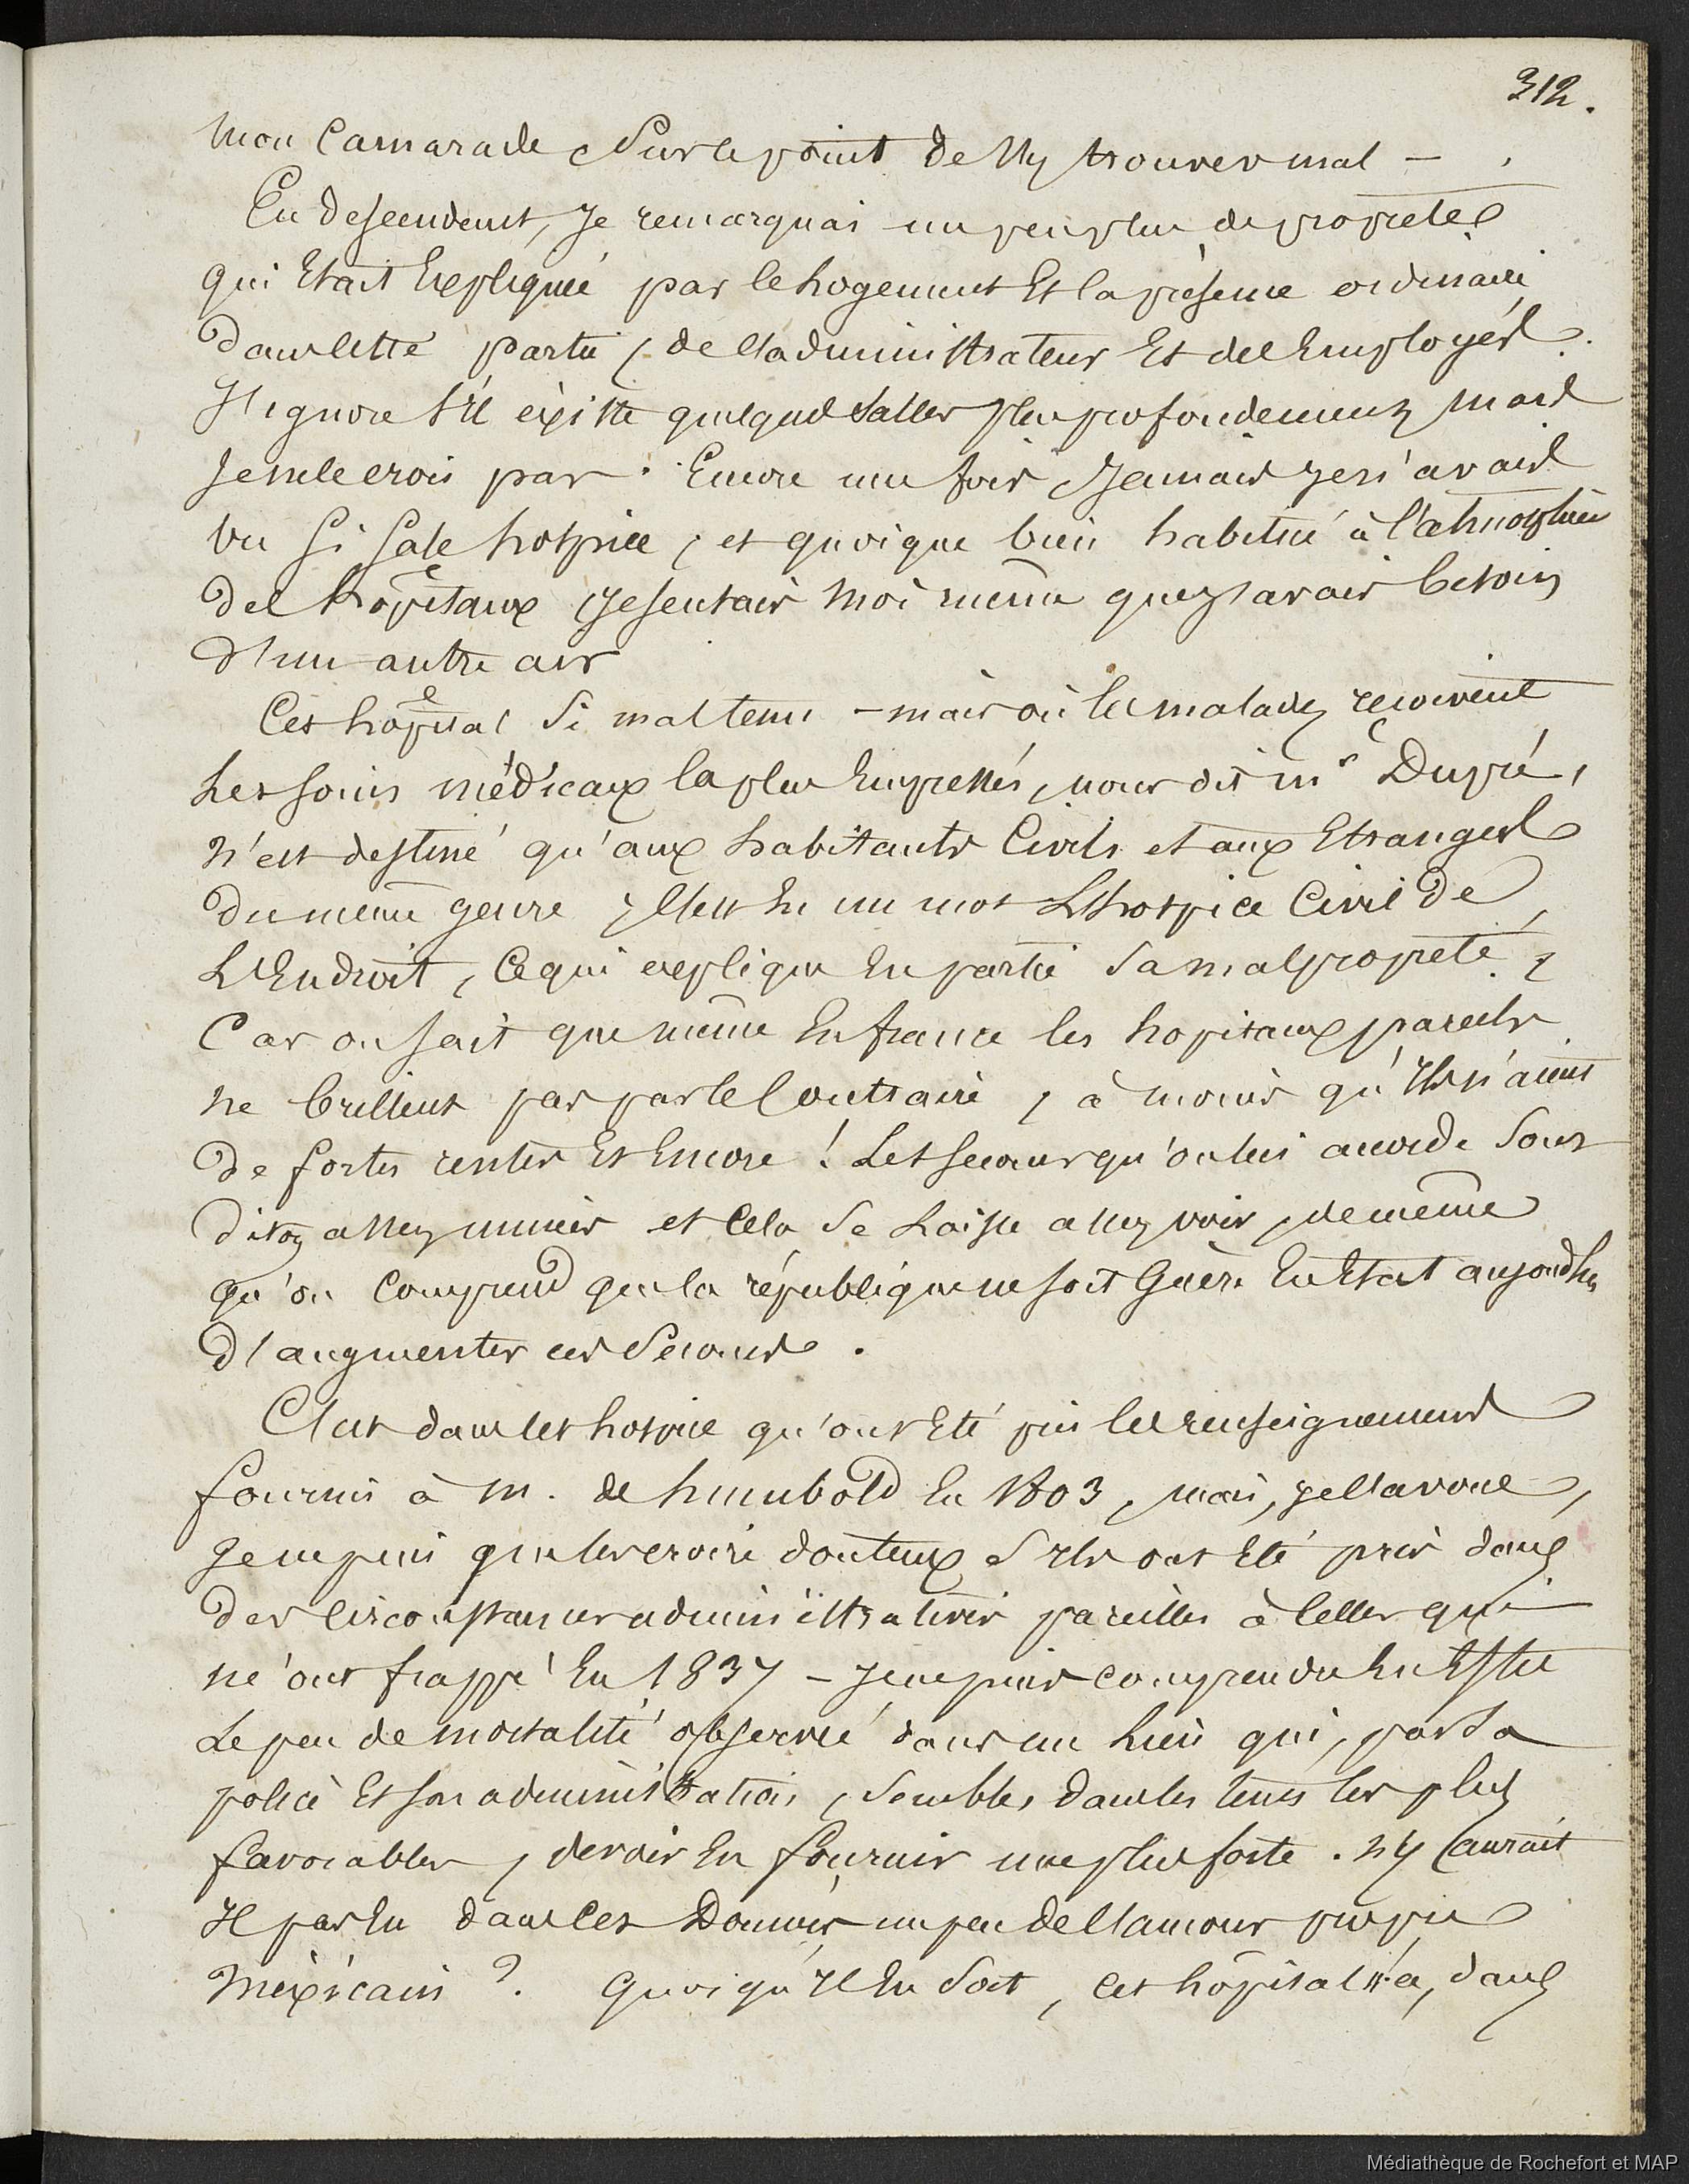 312.
mon Camarade Sur le point de s'y trouver mal —
En descendant, Je remarquai un peu plus de propreté
qui Etait Expliquée par le Logement Et la présence ordinaire
dans cette partie, de l'administrateur Et des Employés.
J'ignore s'il éxiste quelques Salles plus profondement, mais
Je ne le crois pas. Encore une fois Jamais je n'avais
vu si sale hospice, et quoique bien habitué à l'atmosphère
des hôpitaux je sentais moi même que j'avais besoin
d'un autre air
Cet hôpital Si mal tenu — mais où les malades reçoivent
Les soins médicaux les plus Empressés, nous dit mr Dupré,
n'est destiné qu'aux habitants Civils et aux Etrangers
du même genre, C'est En un mot L'hospice Civil de
L'Endroit, Ce qui explique En partie Sa malpropreté,
Car on sait que même En france les hopitaux pareils
ne brillent pas par le Contraire, à moins qu'Ils n'aient
de fortes rentes Et Encore ! Les secours qu'on lui accorde Sont
dit on assez minces et Cela Se Laisse assez voir, de même
qu'on Comprend que la république ne soit Guère En Etat aujourd'hui
d'augmenter ces Secours.
C'est dans cet hospice qu'ont Eté pris les renseignements
fournis à M. de humbold En 1803, mais, je l'avoue,
Je ne puis que les croire douteux S'Ils ont Eté pris dans
des circonstances administratives pareilles à Celles qui
m'ont frappé En 1837 — Je ne puis comprendre En Effet
Le peu de mortalité observée dans un Lieu qui, par Sa
police Et son administration, Semble, dans les tems les plus
favorables, devoir En fournir une plus forte. N'y aurait
Il pas Eu dans Ces Données un peu de l'amour propre
Méxicain ? Quoiqu'Il En Soit, Cet hôpital n'a, dans
Médiathèque de Rochefort et MAP